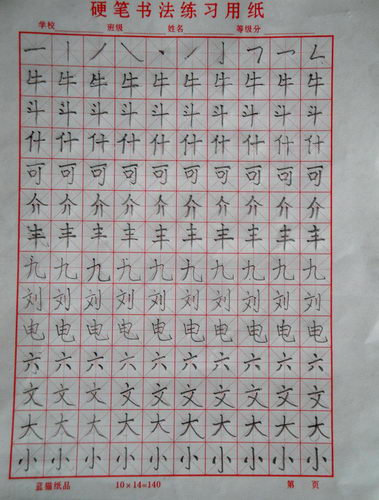 硬笔书法练习用纸
学校 班级 姓名 等级分
一丨丿㇏丶㇀亅𠃌乛𠃊
牛牛牛牛牛牛牛牛牛牛
斗斗斗斗斗斗斗斗斗斗
什什什什什什什什什什
可可可可可可可可可可
介介介介介介介介介介
丰丰丰丰丰丰丰丰丰丰
九九九九九九九九九九
刘刘刘刘刘刘刘刘刘刘
电电电电电电电电电电
六六六六六六六六六六
文文文文文文文文文文
大大大大大大大大大大
小小小小小小小小小小
蓝猫纸品 10×14=140 第 页